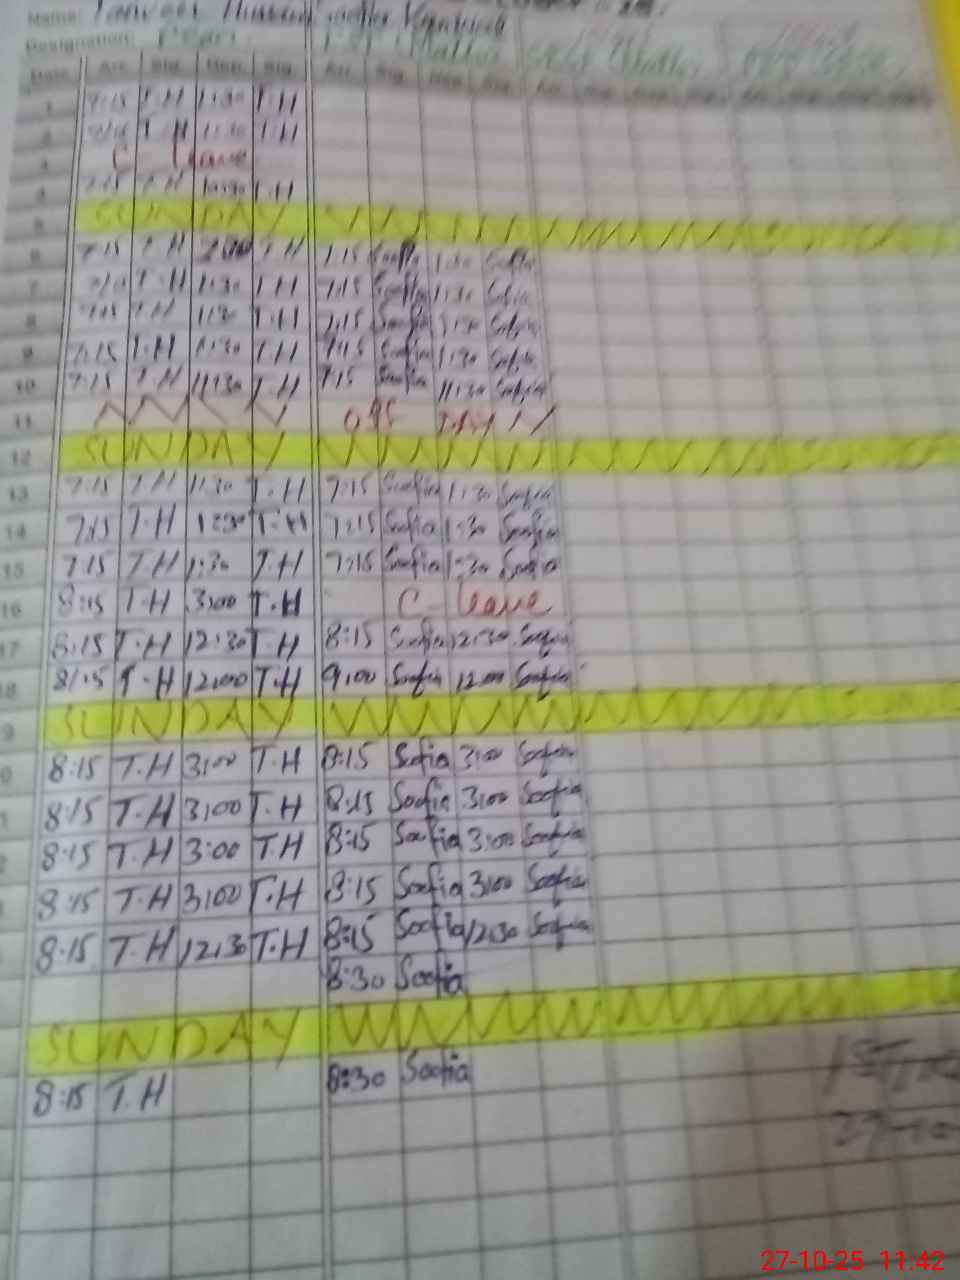 Name: Tanveer Hussain Soofia
Designation:
Date Arr. Sig. Dep. Sig. Arr. Sig. Dep. Sig.
1 7:15 T.H 1:30 T.H
2 T.H 1:30 T.H
3 C- Leave
4 7:15 T.H T.H
5 SUNDAY
6 7:15 T.H T.H 7:15 Soofia 1:30 Soofia
7 T.H 1:30 T.H 7:15 Soofia 1:30 Soofia
8 7:15 T.H 1:30 T.H 7:15 Soofia 1:30 Soofia
9 7:15 T.H 1:30 T.H 7:15 Soofia 1:30 Soofia
10 7:15 T.H 11:30 T.H 7:15 Soofia 11:30 Soofia
11 Off DAY
12 SUNDAY
13 7:15 T.H 1:30 T.H 7:15 Soofia 1:30 Soofia
14 7:15 T.H 1:30 T.H 7:15 Soofia 1:30 Soofia
15 7:15 T.H 1:30 T.H 7:15 Soofia 1:30 Soofia
16 8:15 T.H 3:00 T.H C- Leave
17 8:15 T.H 12:30 T.H 8:15 Soofia 12:30 Soofia
18 8:15 T.H 12:00 T.H 9:00 Soofia 12:00 Soofia
9 SUNDAY
0 8:15 T.H 3:00 T.H 8:15 Soofia 3:00 Soofia
1 8:15 T.H 3:00 T.H 8:15 Soofia 3:00 Soofia
2 8:15 T.H 3:00 T.H 8:15 Soofia 3:00 Soofia
8:15 T.H 3:00 T.H 8:15 Soofia 3:00 Soofia
8:15 T.H 12:30 T.H 8:15 Soofia 12:30 Soofia
8:30 Soofia
SUNDAY
8:15 T.H 8:30 Soofia
27-10
27-10-25 11:42